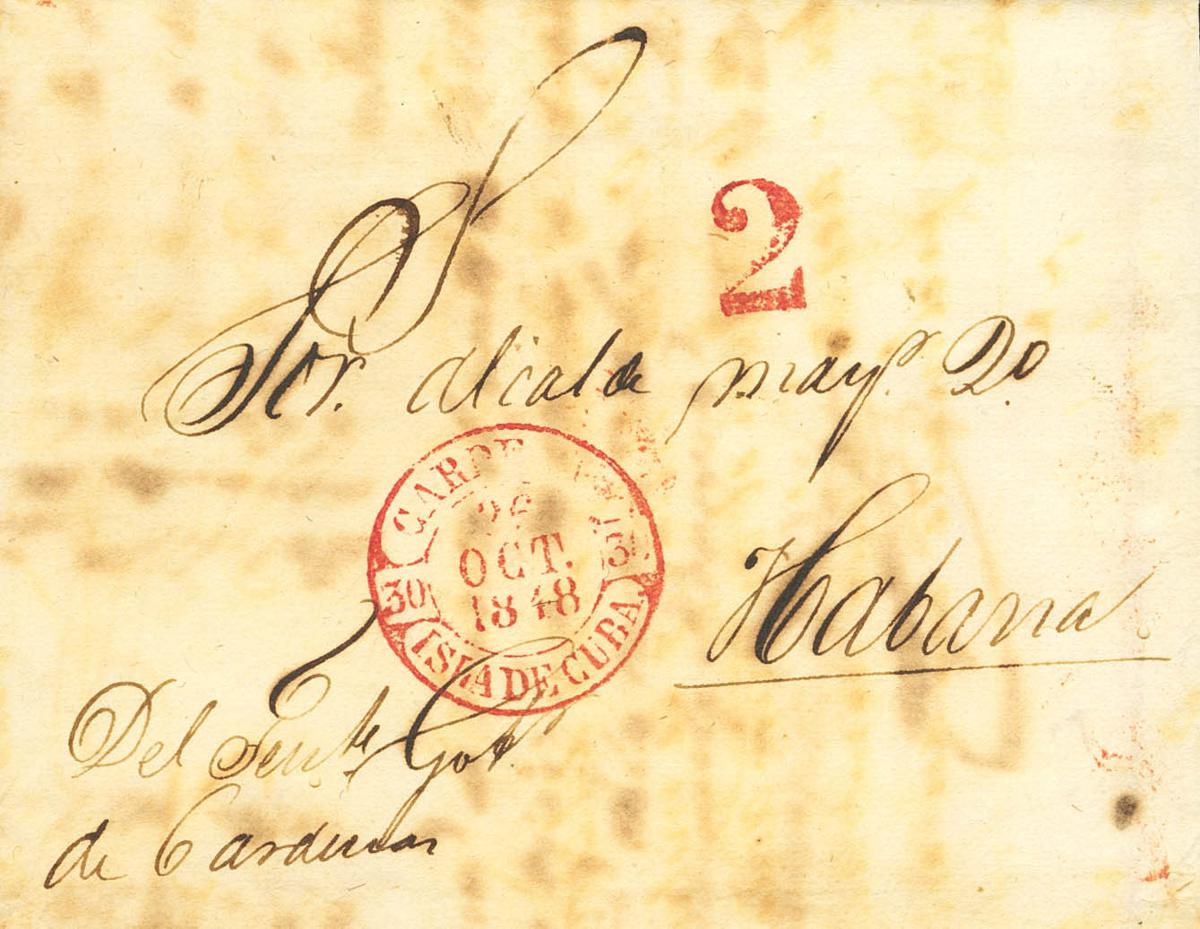 2
Sor. Alcalde mayr. 2o.
CARDE
OCT.
1848
30 30
ISLA DE CUBA.
Habana
Del Tente. Gobr.
de Cardenas